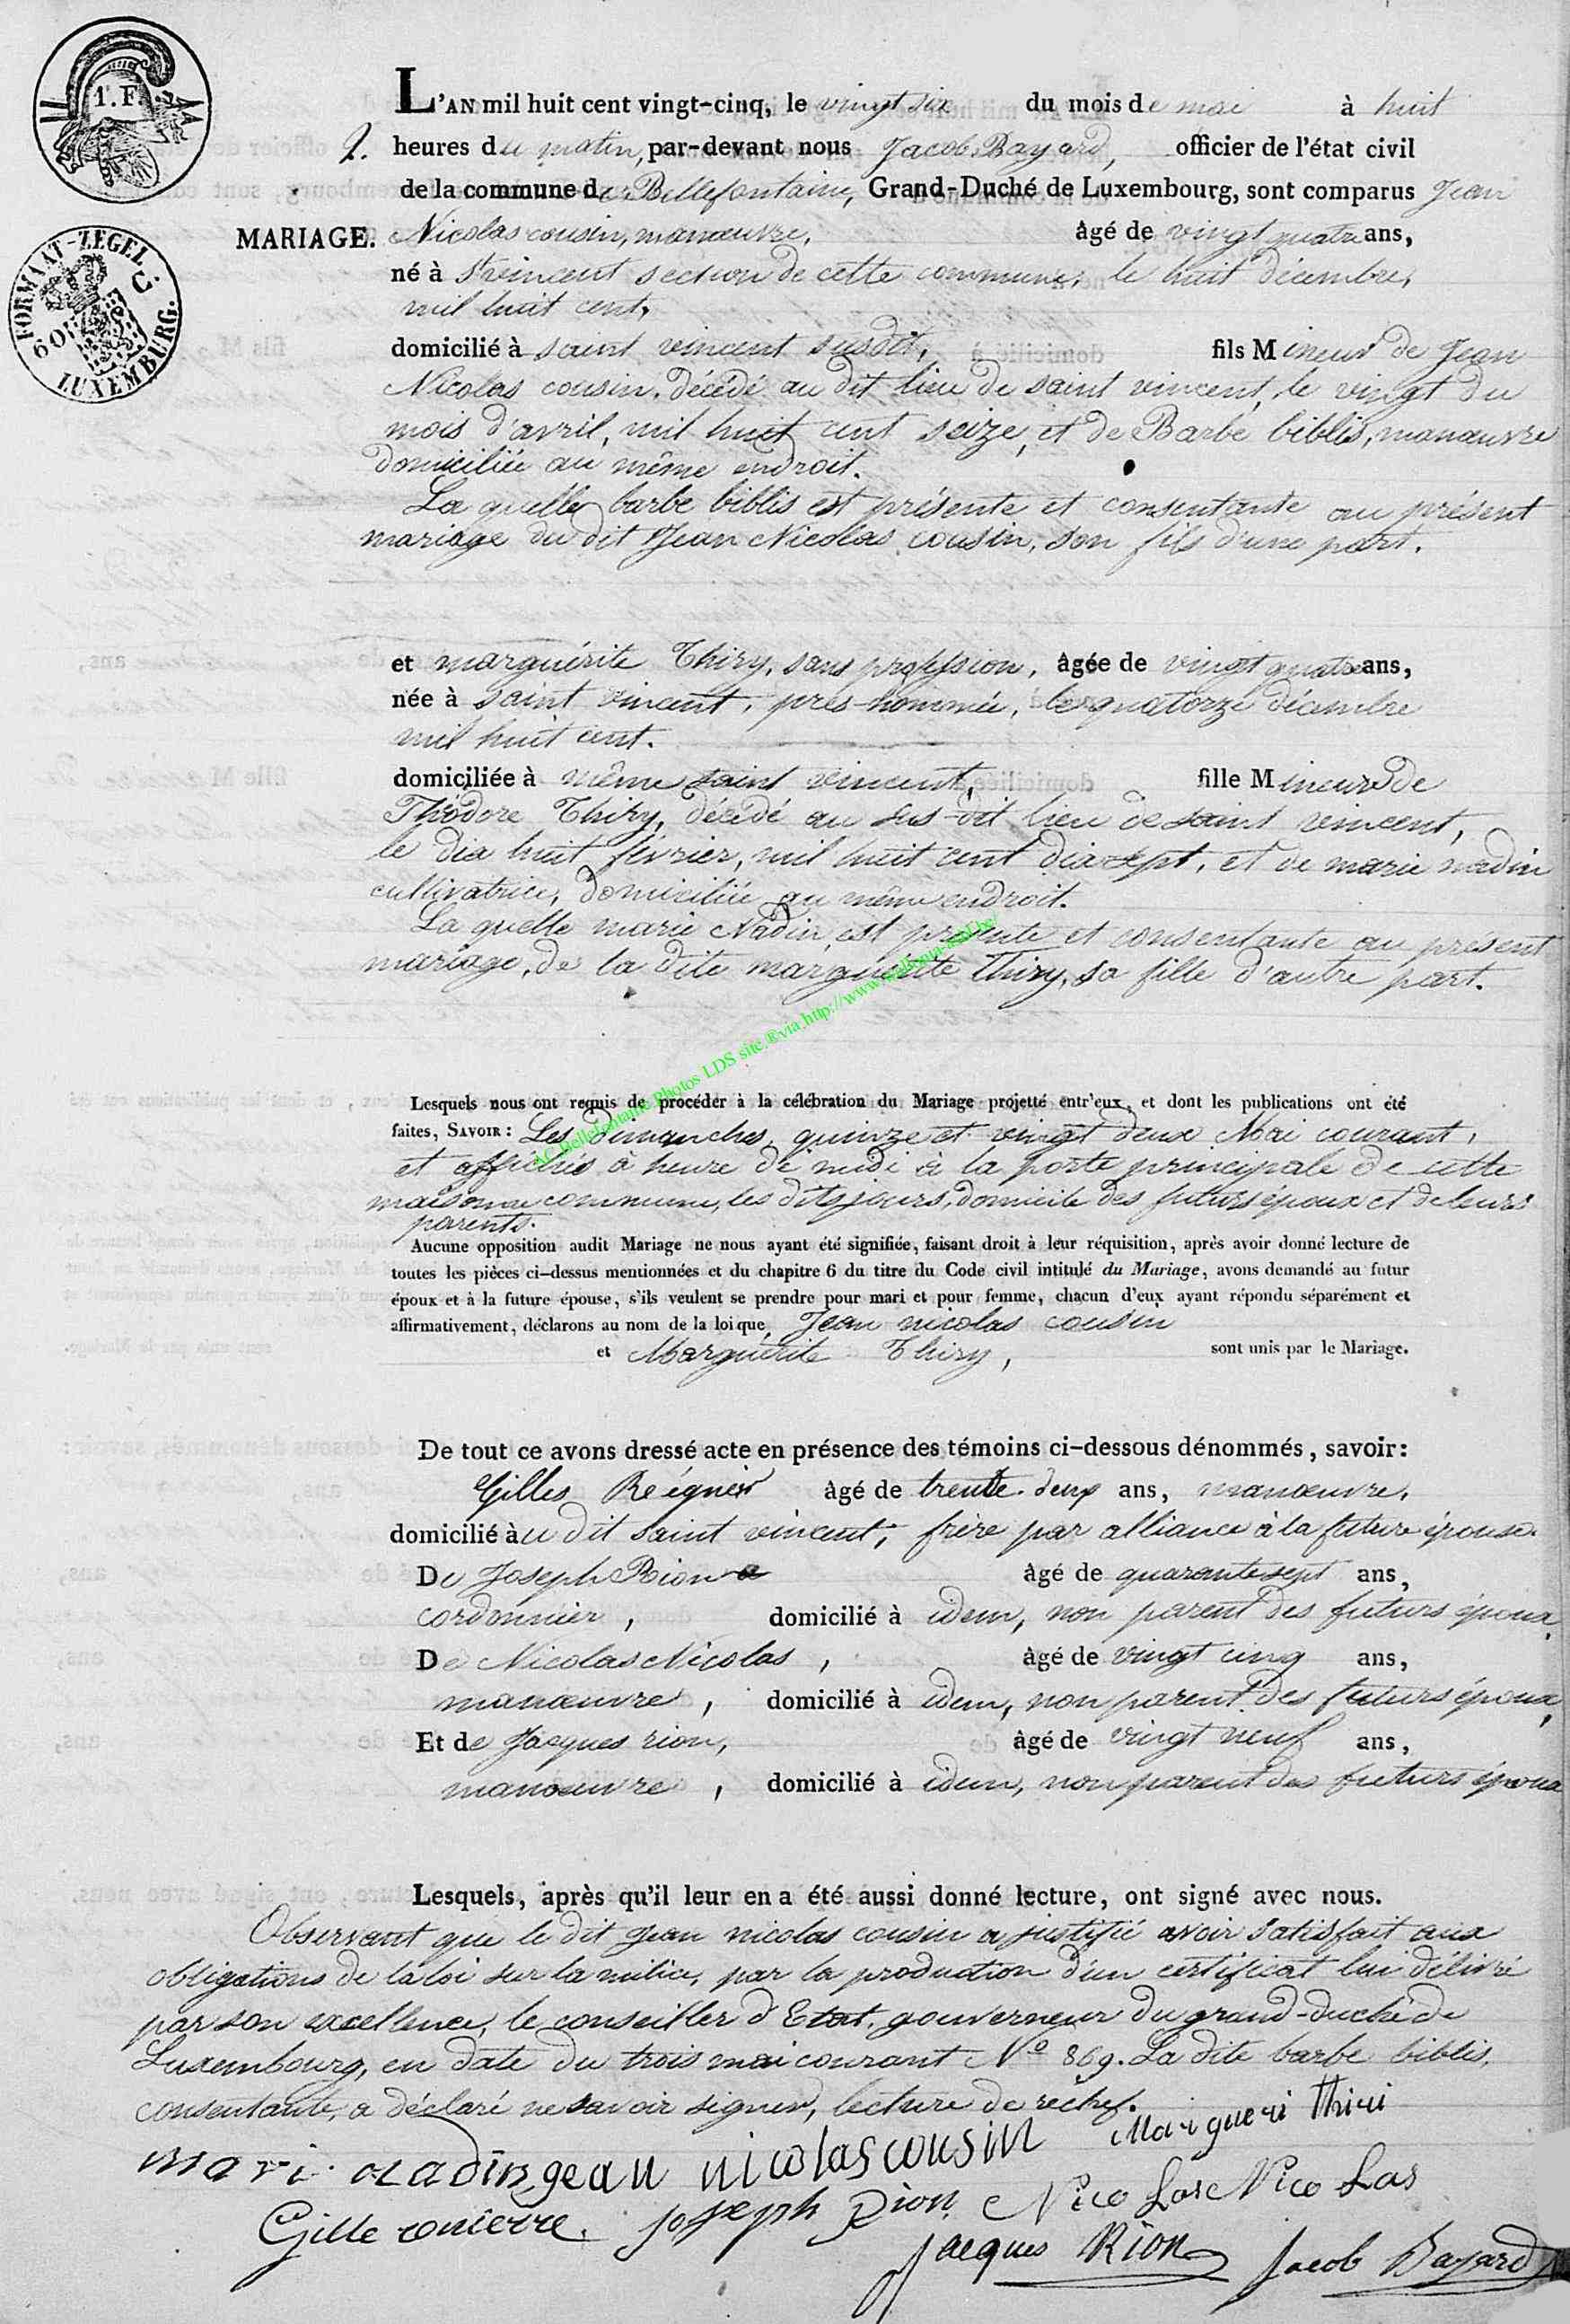 1. F.
FORMAAT-ZEGEL
60
LUXEMBURG.
2.
MARIAGE.
L'AN mil huit cent vingt-cinq, le vingt six du mois de mai à huit
heures du matin, par-devant nous Jacob Bayard, officier de l'état civil
de la commune de Bellefontaine, Grand-Duché de Luxembourg, sont comparus Jean
Nicolas cousin, manœuvre, âgé de vingt quatre ans,
né à St vincent section de cette commune, le huit décembre,
mil huit cent,
domicilié à saint vincent susdit, fils Mineur de Jean
Nicolas cousin, décédé au dit lieu de saint vincent, le vingt du
mois d'avril, mil huit cent seize, et de Barbe biblis, manœuvre
domiciliée au même endroit.
La quelle barbe biblis est présente et consentante au présent
mariage du dit Jean Nicolas cousin, son fils d'une part.
et marguérite Thiry, sans profession, âgée de vingt quatre ans,
née à saint vincent, près-nommée, le quatorze décembre
mil huit cent.
domiciliée à même saint vincent, fille Mineure de
Théodore Thiry, décédé au sus-dit lieu de saint vincent,
le dix huit février, mil huit cent dix sept, et de marie nadin
cultivatrice, domiciliée au même endroit.
La quelle marie Nadin est présente et consentante au présent
mariage, de la dite marguérite Thiry, sa fille d'autre part.
AC Bellefontaine Photos LDS site ® via http://www.
Lesquels nous ont requis de procéder à la célébration du Mariage projetté entr'eux, et dont les publications ont été
faites, SAVOIR: Les Dimanches, quinze et vingt deux Mai courant,
et affichés à heure de midi à la porte principale de cette
maison commune, les dits jours, domicile des futurs époux et de leurs
parents.
Aucune opposition audit Mariage ne nous ayant été signifiée, faisant droit à leur réquisition, après avoir donné lecture de
toutes les pièces ci-dessus mentionnées et du chapitre 6 du titre du Code civil intitulé du Mariage, avons demandé au futur
époux et à la future épouse, s'ils veulent se prendre pour mari et pour femme, chacun d'eux ayant répondu séparément et
affirmativement, déclarons au nom de la loi que, Jean nicolas cousin
et Marguérite Thiry, sont unis par le Mariage.
De tout ce avons dressé acte en présence des témoins ci-dessous dénommés, savoir:
Gilles Réignier âgé de trente deux ans, manœuvre,
domicilié au dit saint vincent, frère par alliance à la future épouse.
De Joseph Rion âgé de quarante sept ans,
cordonnier, domicilié à idem, non parent des futurs époux,
De Nicolas Nicolas, âgé de vingt cinq ans,
manœuvre, domicilié à idem, non parent des futurs époux,
Et de Jacques rion, âgé de vingt neuf ans,
manœuvre, domicilié à idem, non parent des futurs époux
Lesquels, après qu'il leur en a été aussi donné lecture, ont signé avec nous.
Observant que le dit Jean nicolas cousin a justifié avoir satisfait aux
obligations de la loi sur la milice, par la production d'un certificat lui délivré
par son excellence, le conseiller d'Etat, gouverneur du grand-duché de
Luxembourg, en date du trois mai courant No 869. La dite barbe biblis,
consentante, a déclaré ne savoir signer, lecture de rechef.
mari nadin jean nicolas cousin Margueri thiri
Gille renierre. joseph Rion Nicolas Nicolas
jacques Rion Jacob Bayard